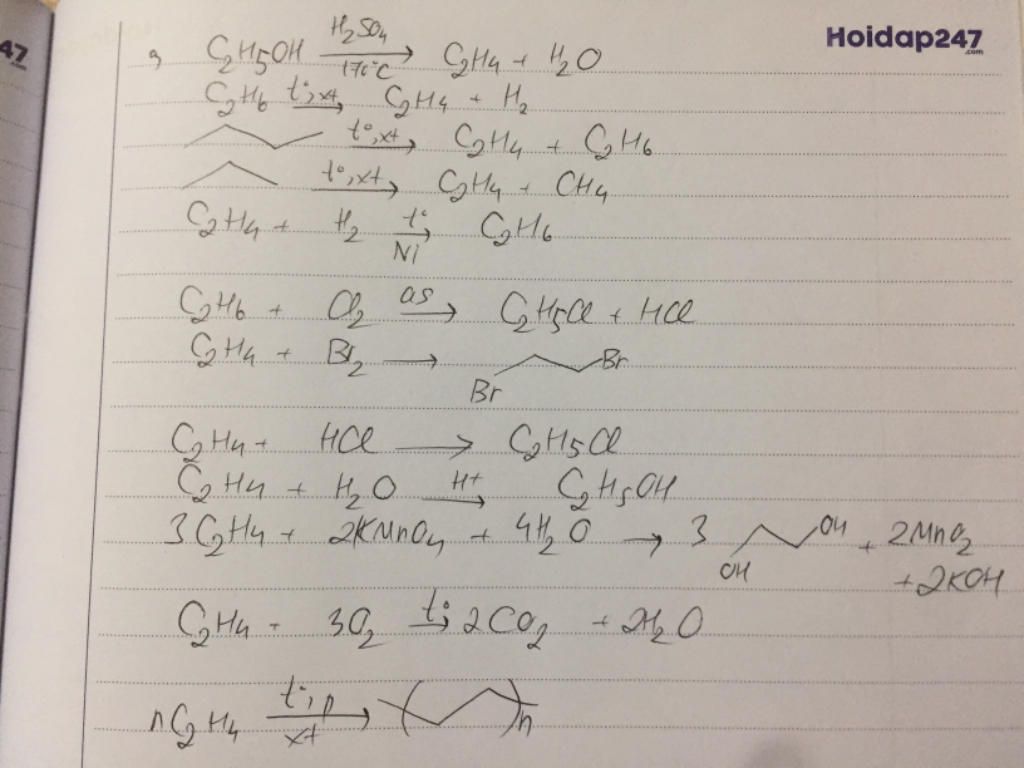 47
.com
Hoidap247
.com
a, C₂H₅OH H₂SO₄ 170°C → C₂H₄ + H₂O
C₂H₆ t°, xt → C₂H₄ + H₂
t°, xt → C₂H₄ + C₂H₆
t°, xt → C₂H₄ + CH₄
C₂H₄ + H₂ t° Ni → C₂H₆
C₂H₆ + Cl₂ as → C₂H₅Cl + HCl
C₂H₄ + Br₂ → Br Br
C₂H₄ + HCl → C₂H₅Cl
C₂H₄ + H₂O H+ → C₂H₅OH
3C₂H₄ + 2KMnO₄ + 4H₂O → 3 OH OH + 2MnO₂
+ 2KOH
C₂H₄ + 3O₂ t° → 2CO₂ + 2H₂O
nC₂H₄ t°, p xt → ( )n